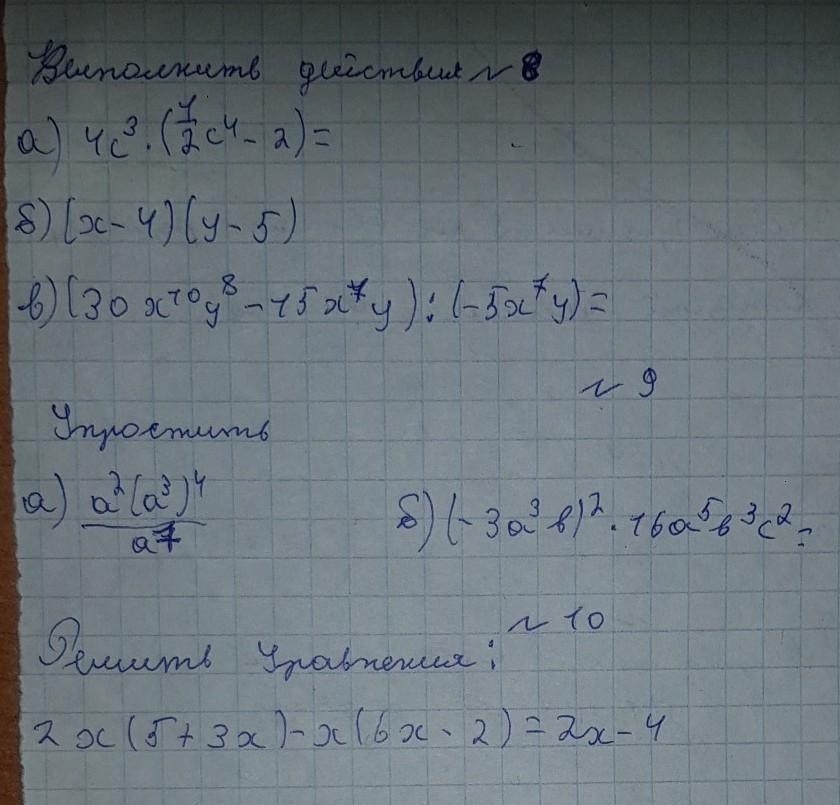 Выполнить действия № 8
а) 4c³·(1/2c⁴ - 2) =
б) (x - 4)(y - 5)
в) (30x¹⁰y⁸ - 15x⁷y) : (-5x⁷y) =
№ 9
Упростить
а) a²(a³)⁴/a⁷
б) (-3a³b)²·16a⁵b³c² =
№ 10
Решить Уравнения:
2x(5 + 3x) - x(6x - 2) = 2x - 4